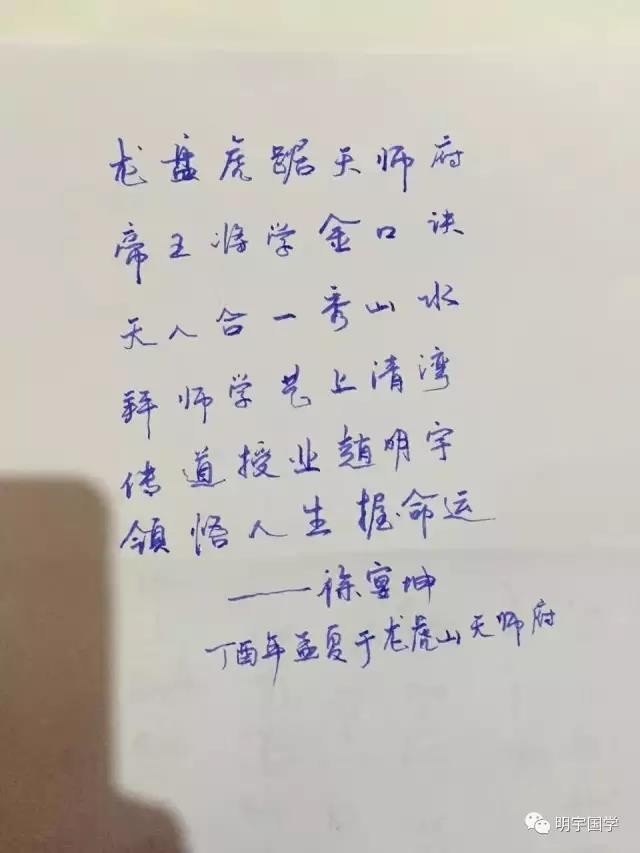 龙盘虎踞天师府
帝王将学金口诀
天人合一秀山水
拜师学艺上清湾
传道授业赵明宇
领悟人生握命运
——徐宴坤
丁酉年孟夏于龙虎山天师府
明宇国学